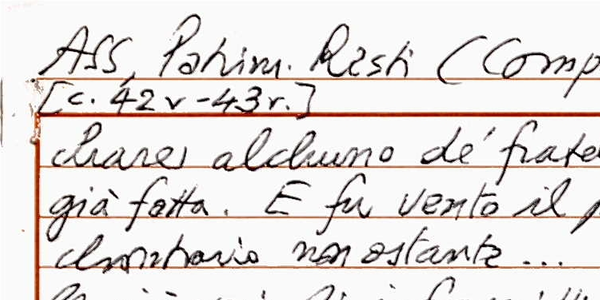 Ass. Patrim. Resti (Comp
[c. 42v-43r.]
chiarej alchuno de' frate
già fatta. E fu vento il p
chontrario non ostante...